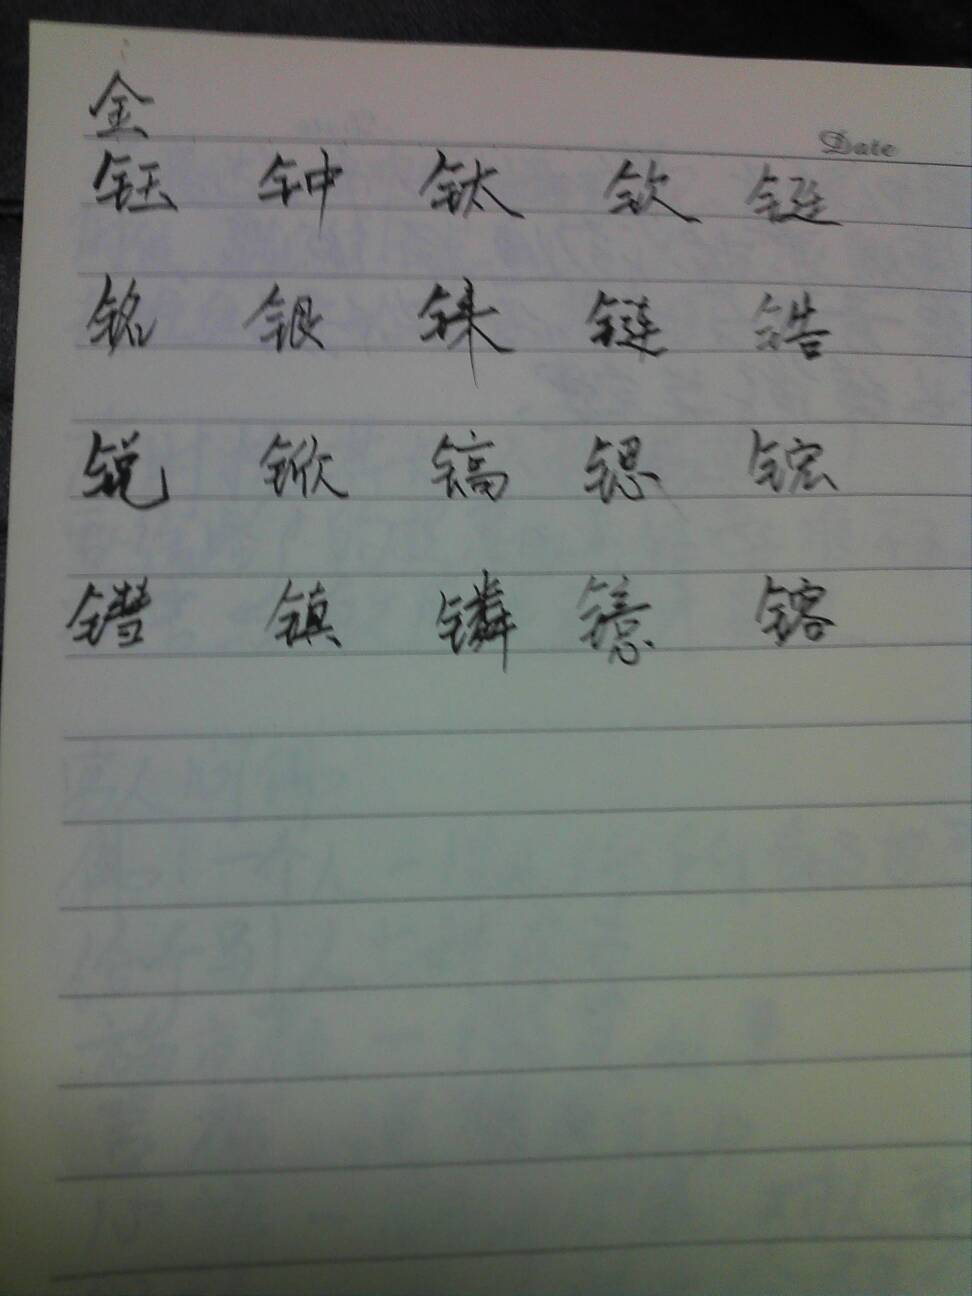 金
Date
钰 钟 钛 钦
铭 银 铢 链 锆
锐 锨 镐 锶
镇 𬭸 镱 镕